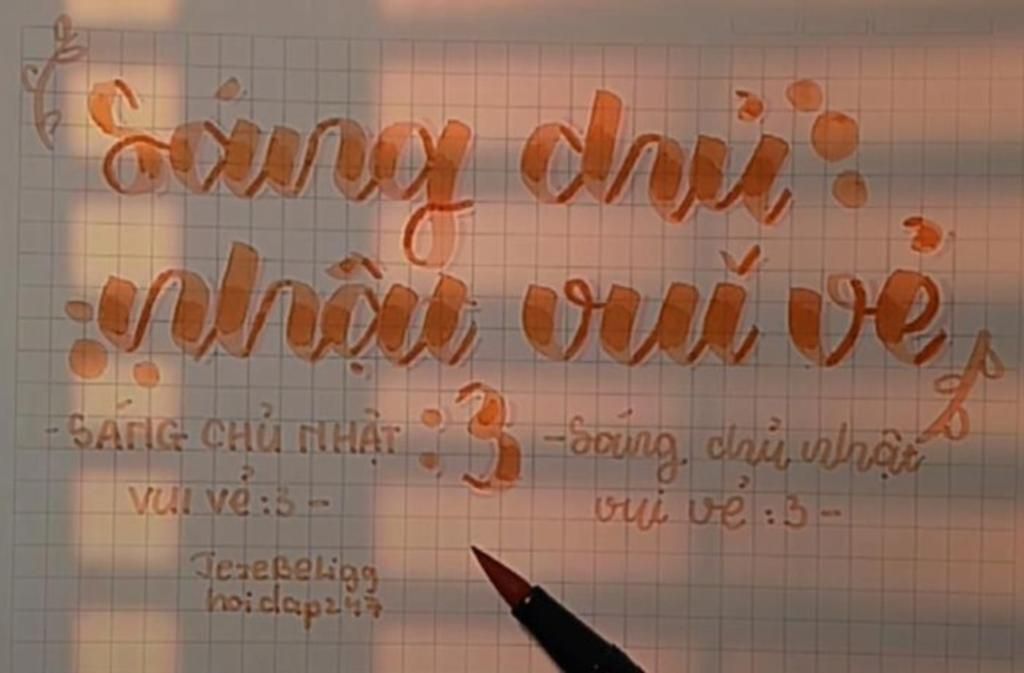 Sáng chủ
nhật vui vẻ
:3
- SÁNG CHỦ NHẬT
vui vẻ :3 -
- Sáng chủ nhật
vui vẻ :3 -
JezeBeligg
hoidap247